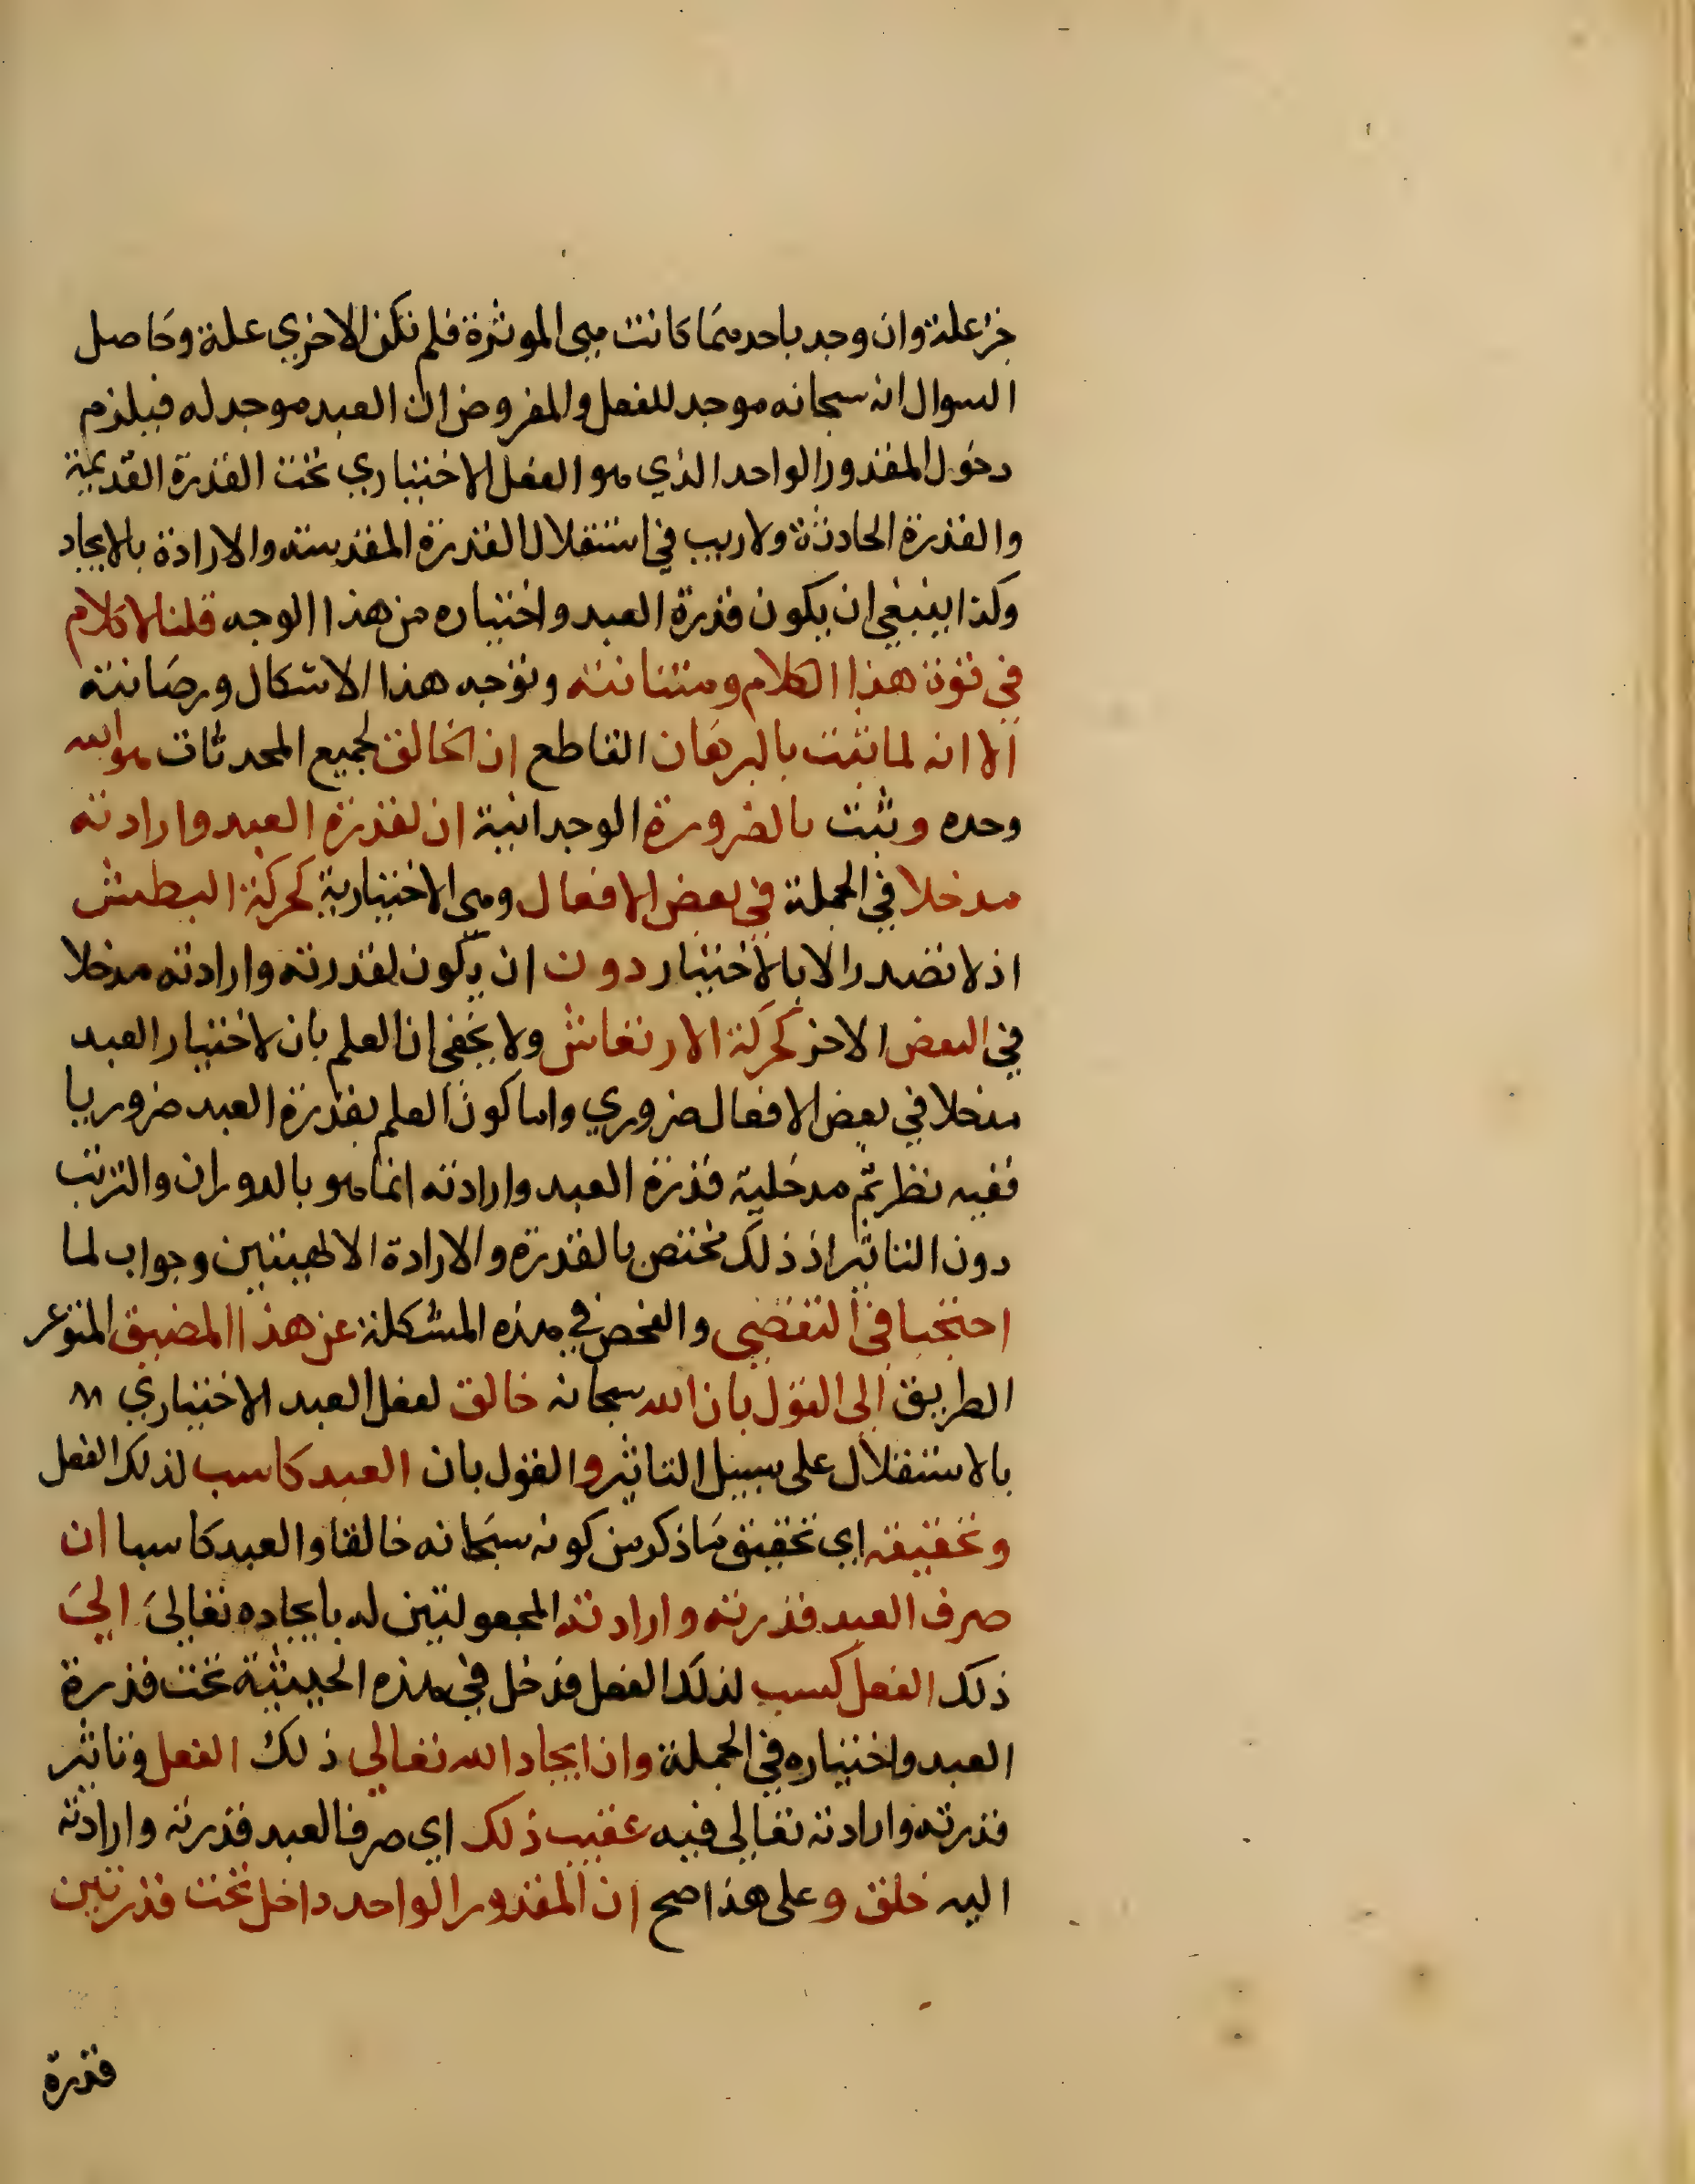 جزعلة وان وجد باحدهما كانت هي الموثرة فلم تكن الاخري علة وحاصل
السوال انه سبحانه موجد للفعل والمفروض ان العبد موجد له فيلزم
دخول المقدور الواحد الذي هو الفعل الاختياري تحت القدرة القديمة
والقدرة الحادثة ولاريب في استقلال القدرة المقدسة والارادة بالايجاد
وكذا ينبغي ان يكون قدرة العبد واختياره من هذا الوجه قلنا لا كلام
في قوة هذا الكلام ومتانته وتوجه هذا الاشكال ورصانته
الا انه لما ثبت بالبرهان القاطع ان الخالق لجميع المحدثات هو الله
وحده وثبت بالضرورة الوجدانية ان لقدرة العبد وارادته
مدخلا في الجملة في بعض الافعال وهي الاختيارية كحركة البطش
اذ لا تصدر الا بالاختيار دون ان يكون لقدرته وارادته مدخلا
في البعض الاخر كحركة الارتعاش ولا يخفى ان العلم بان لاختيار العبد
مدخلا في بعض الافعال ضروري واما كون العلم بقدرة العبد ضروريا
ففيه نظر ثم مدخلية قدرة العبد وارادته انما هو بالدوران والترتب
دون التاثير اذ ذلك مختص بالقدرة والارادة الالهيتين وجواب لما
احتجنا في التفصي والفحص في هذه المشكلة عن هذا المضيق المتوعر
الطريق الى القول بان الله سبحانه خالق لفعل العبد الاختياري
بالاستقلال على سبيل التاثير والقول بان العبد كاسب لذلك الفعل
وتحقيقه اي تحقيق ما ذكر من كونه سبحانه خالقا والعبد كاسبا ان
صرف العبد قدرته وارادته المجعولتين له بايجاده تعالى الى
ذلك الفعل كسب لذلك الفعل فدخل في هذه الحيثية تحت قدرة
العبد واختياره في الجملة وان ايجاد الله تعالي ذلك الفعل وتاثير
قدرته وارادته تعالي فيه عقيب ذلك اي صرف العبد قدرته وارادته
اليه خلق وعلى هذا صح ان المقدور الواحد داخل تحت قدرتين
قدرة